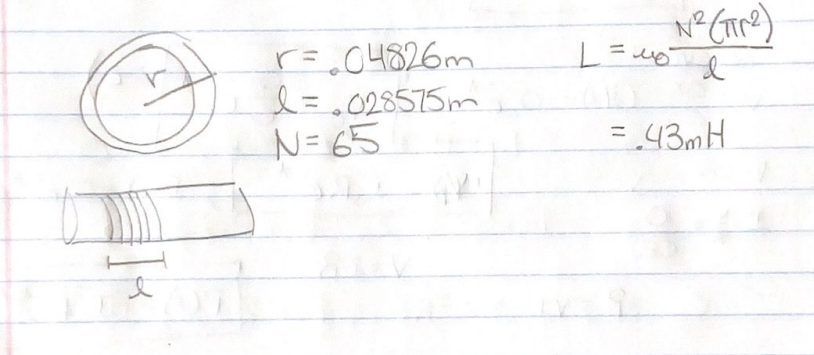 r
r = .04826m
l = .028575m
N = 65
L = μ₀ N²(πr²)/l
= .43mH
l